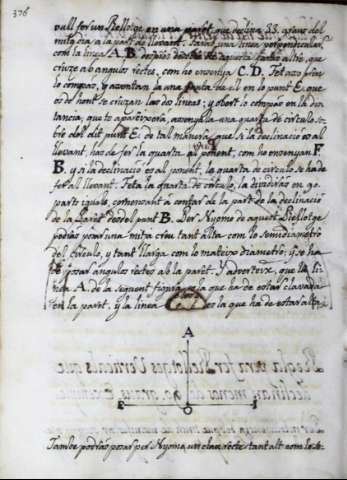 376
vull fer un Rellotge en una paret, que declina 35. graus del
mitg dia a la part de llevant. Faras una linea perpendicular,
com la linea A. B. despues dedins de aquesta faras altre, que
cruze ab angulos rectes, com ho ensenya C. D. Fet axo prin
lo compas, y assentan la una punta de ell en lo punt E. que
es de hont se cruzan las dos lineas; y obert lo compas en la dis
tancia, que te apareixera, assenyala una quarta de circulo, so-
bre del dit punt E. de tal manera, que si la declinacio es al
llevant, has de fer la quarta al ponent, com ho ensenyan F
B. y si la declinacio es al ponent, la quarta de circulo se ha de
fer al llevant. Feta la quarta de circulo, la dividiràs en 90.
parts iguals, comensant a contar de la part de la declinació
de la Paret desdel punt B. Per Nyomo de aquest Rellotge
podràs posar una mitja creu tant alta com lo semidiametro
del Circulo, y tant llarga com lo mateix diametro; y se ha
de posar a angulos rectes ab la paret. Y adverteix, que la li-
nea A. de la seguent figura es la que ha de estar clavada
en la paret, y la linea es la que ha de estar alta
A
O
Tambe podràs posar per Nyomo, un clau recte tant alt com lo se-